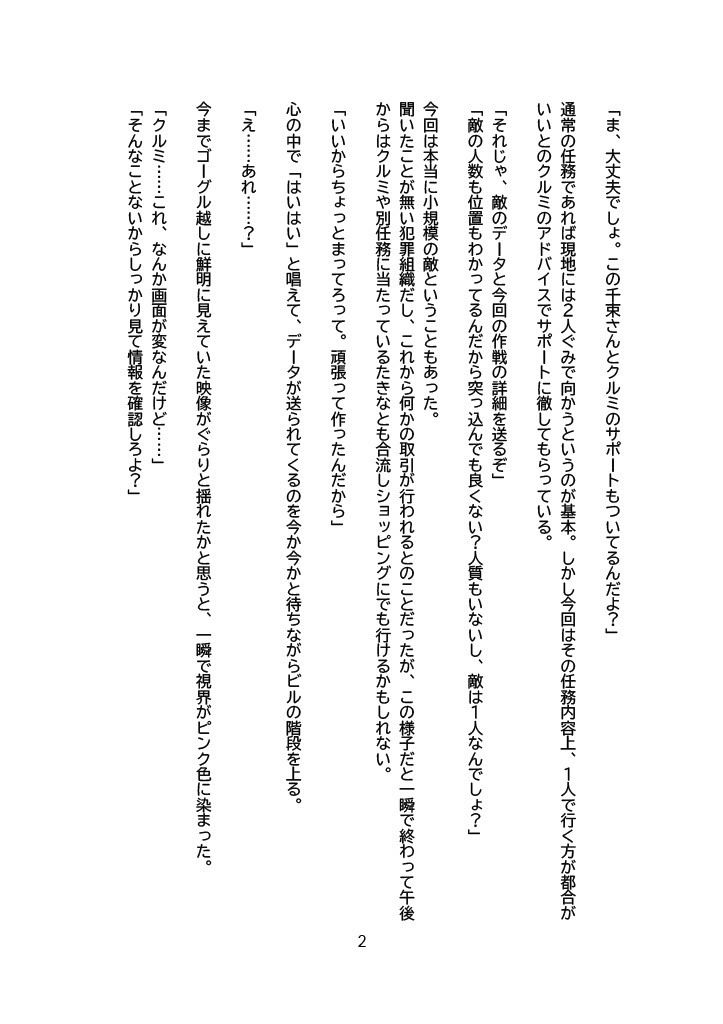 「ま、大丈夫でしょ。この千束さんとクルミのサポートもついてるんだよ？」
通常の任務であれば現地には２人ぐみで向かうというのが基本。しかし今回はその任務内容上、１人で行く方が都合が
いいとのクルミのアドバイスでサポートに徹してもらっている。
「それじゃ、敵のデータと今回の作戦の詳細を送るぞ」
「敵の人数も位置もわかってるんだから突っ込んでも良くない？人質もいないし、敵は１人なんでしょ？」
今回は本当に小規模の敵ということもあった。
聞いたことが無い犯罪組織だし、これから何かの取引が行われるとのことだったが、この様子だと一瞬で終わって午後
からはクルミや別任務に当たっているたきなとも合流しショッピングにでも行けるかもしれない。
「いいからちょっとまってろって。頑張って作ったんだから」
心の中で「はいはい」と唱えて、データが送られてくるのを今か今かと待ちながらビルの階段を上る。
「え……あれ……？」
今までゴーグル越しに鮮明に見えていた映像がぐらりと揺れたかと思うと、一瞬で視界がピンク色に染まった。
「クルミ……これ、なんか画面が変なんだけど……」
「そんなことないからしっかり見て情報を確認しろよ？」
2